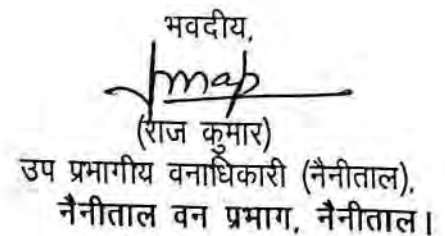 भवदीय,
(राज कुमार)
उप प्रभागीय वनाधिकारी (नैनीताल),
नैनीताल वन प्रभाग, नैनीताल।